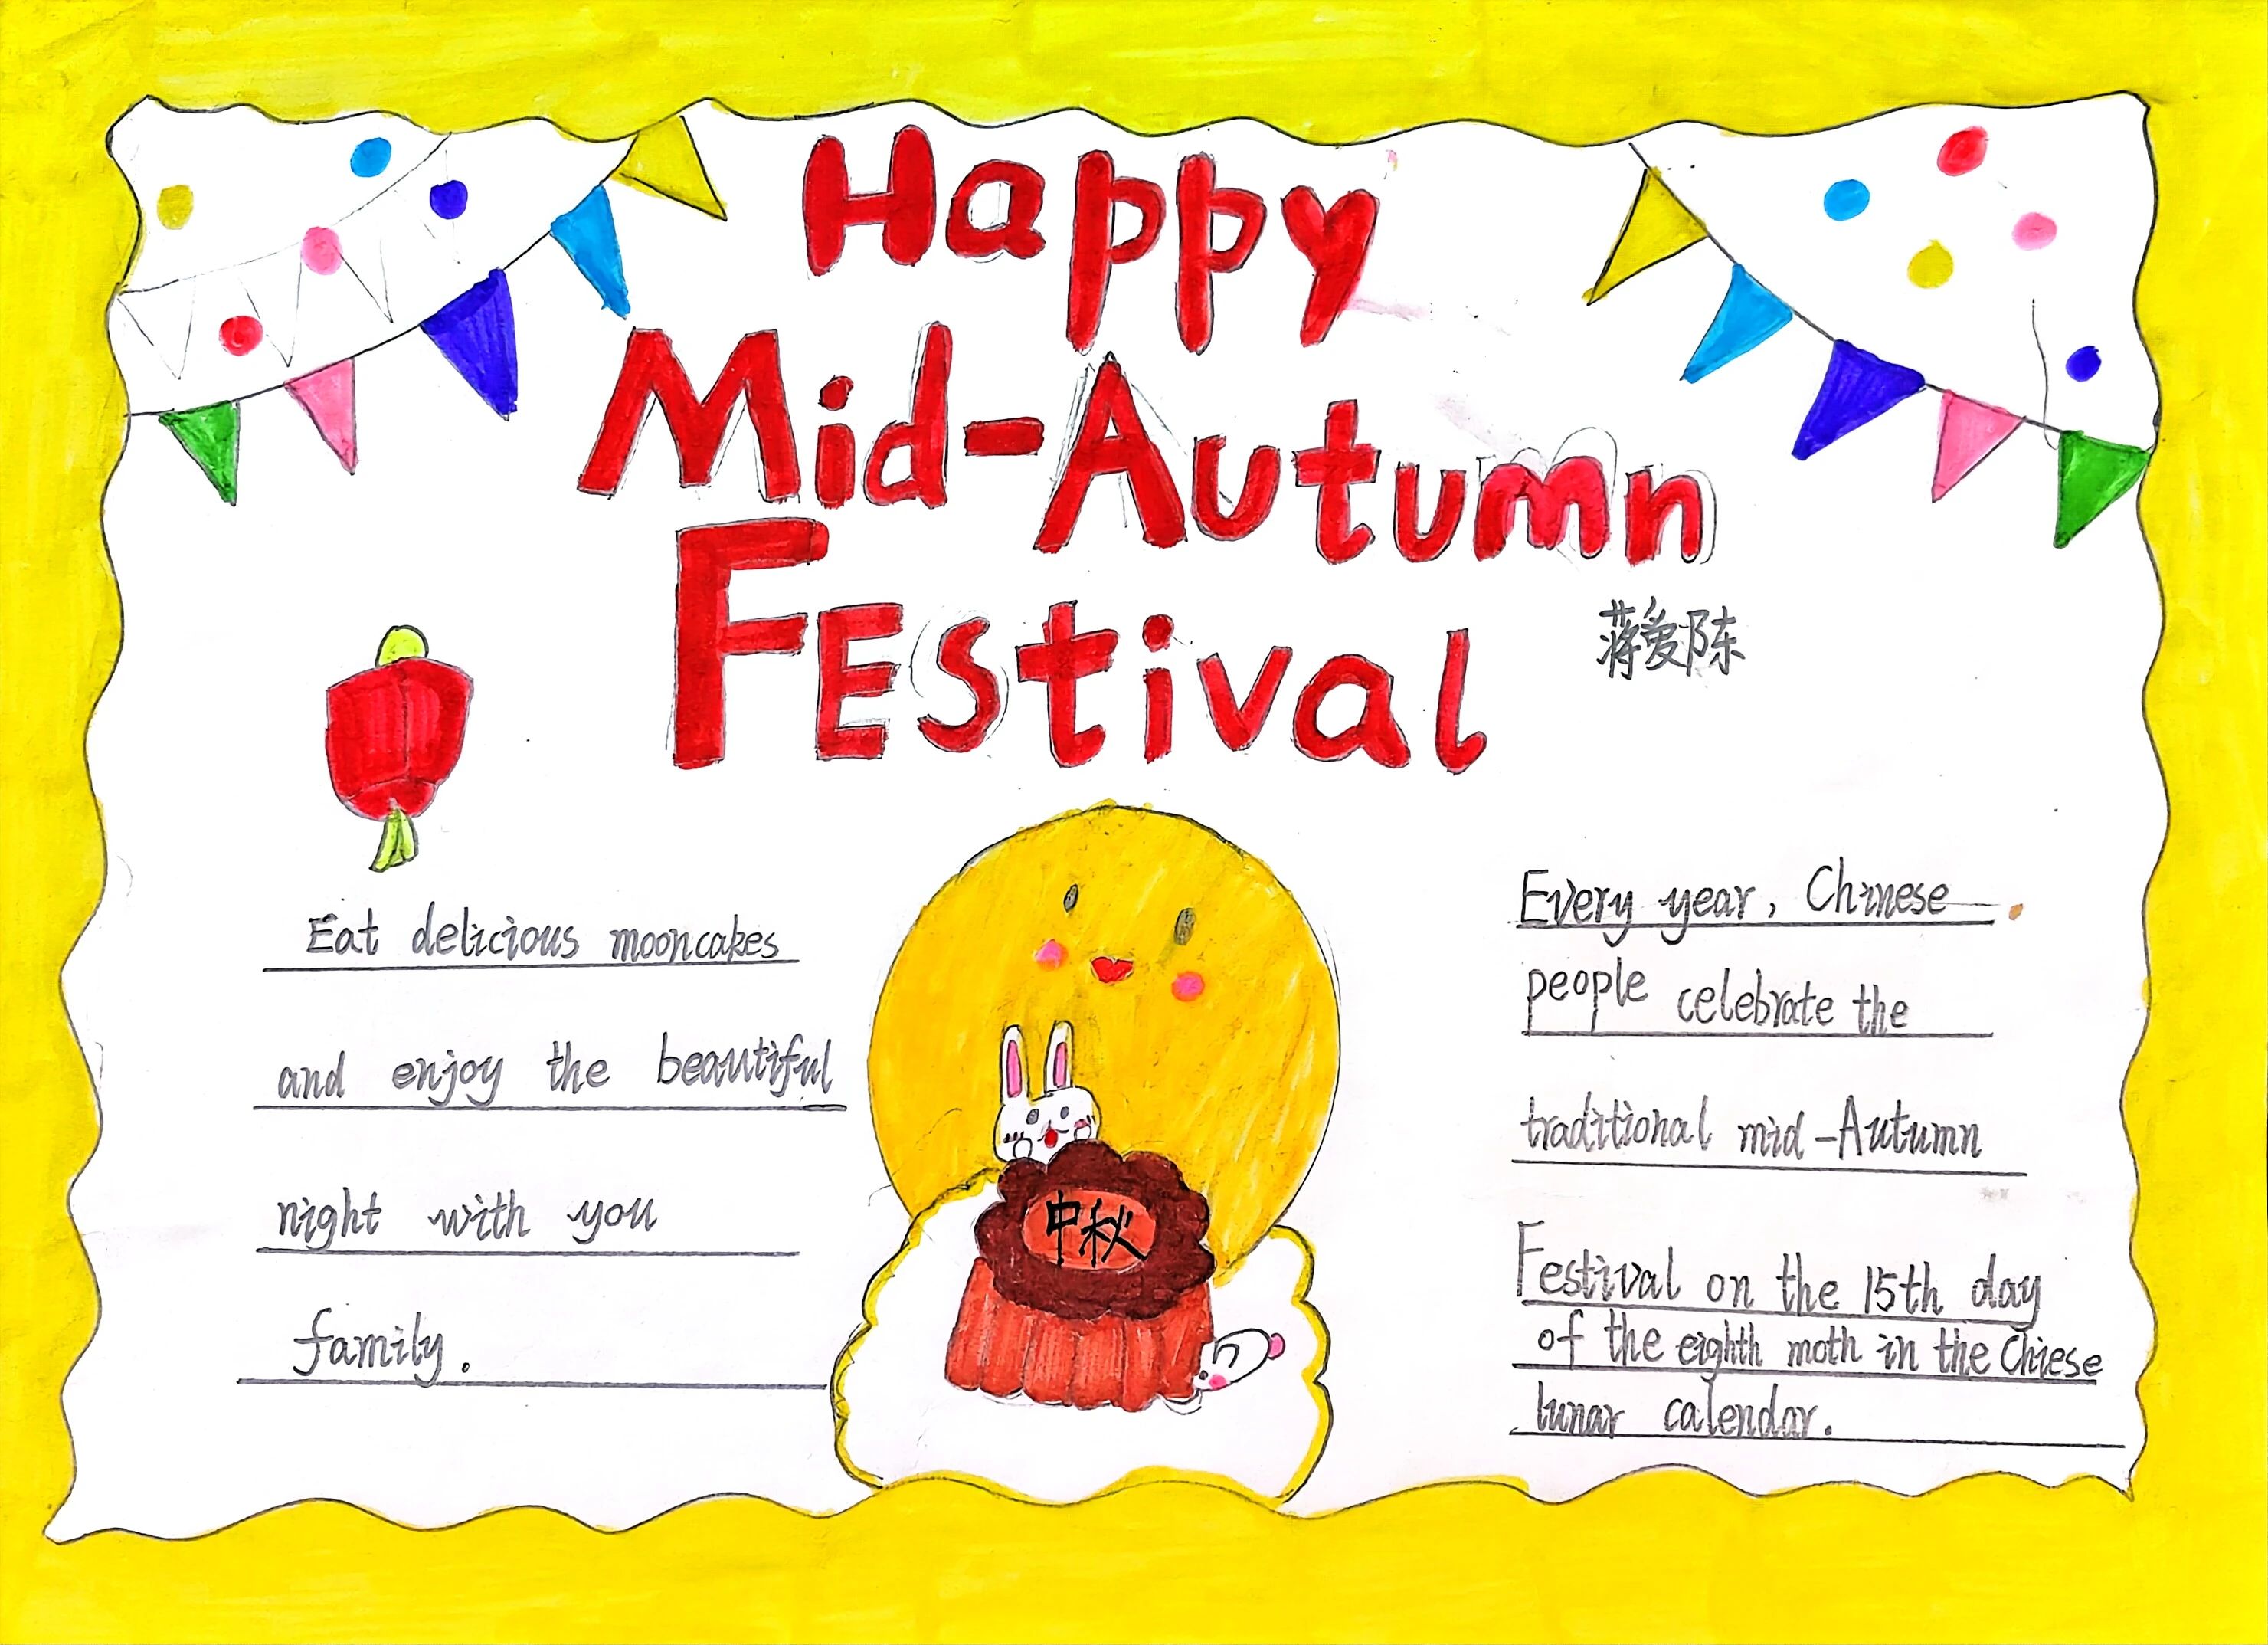 Happy
Mid-Autumn
FEstival
蒋爱陈
Eat delicious mooncakes
and enjoy the beautiful
night with you
family.
中秋
Every year, Chinese
people celebrate the
traditional mid-Autumn
Festival on the 15th day
of the eighth moth in the Chiese
lunar calendar.